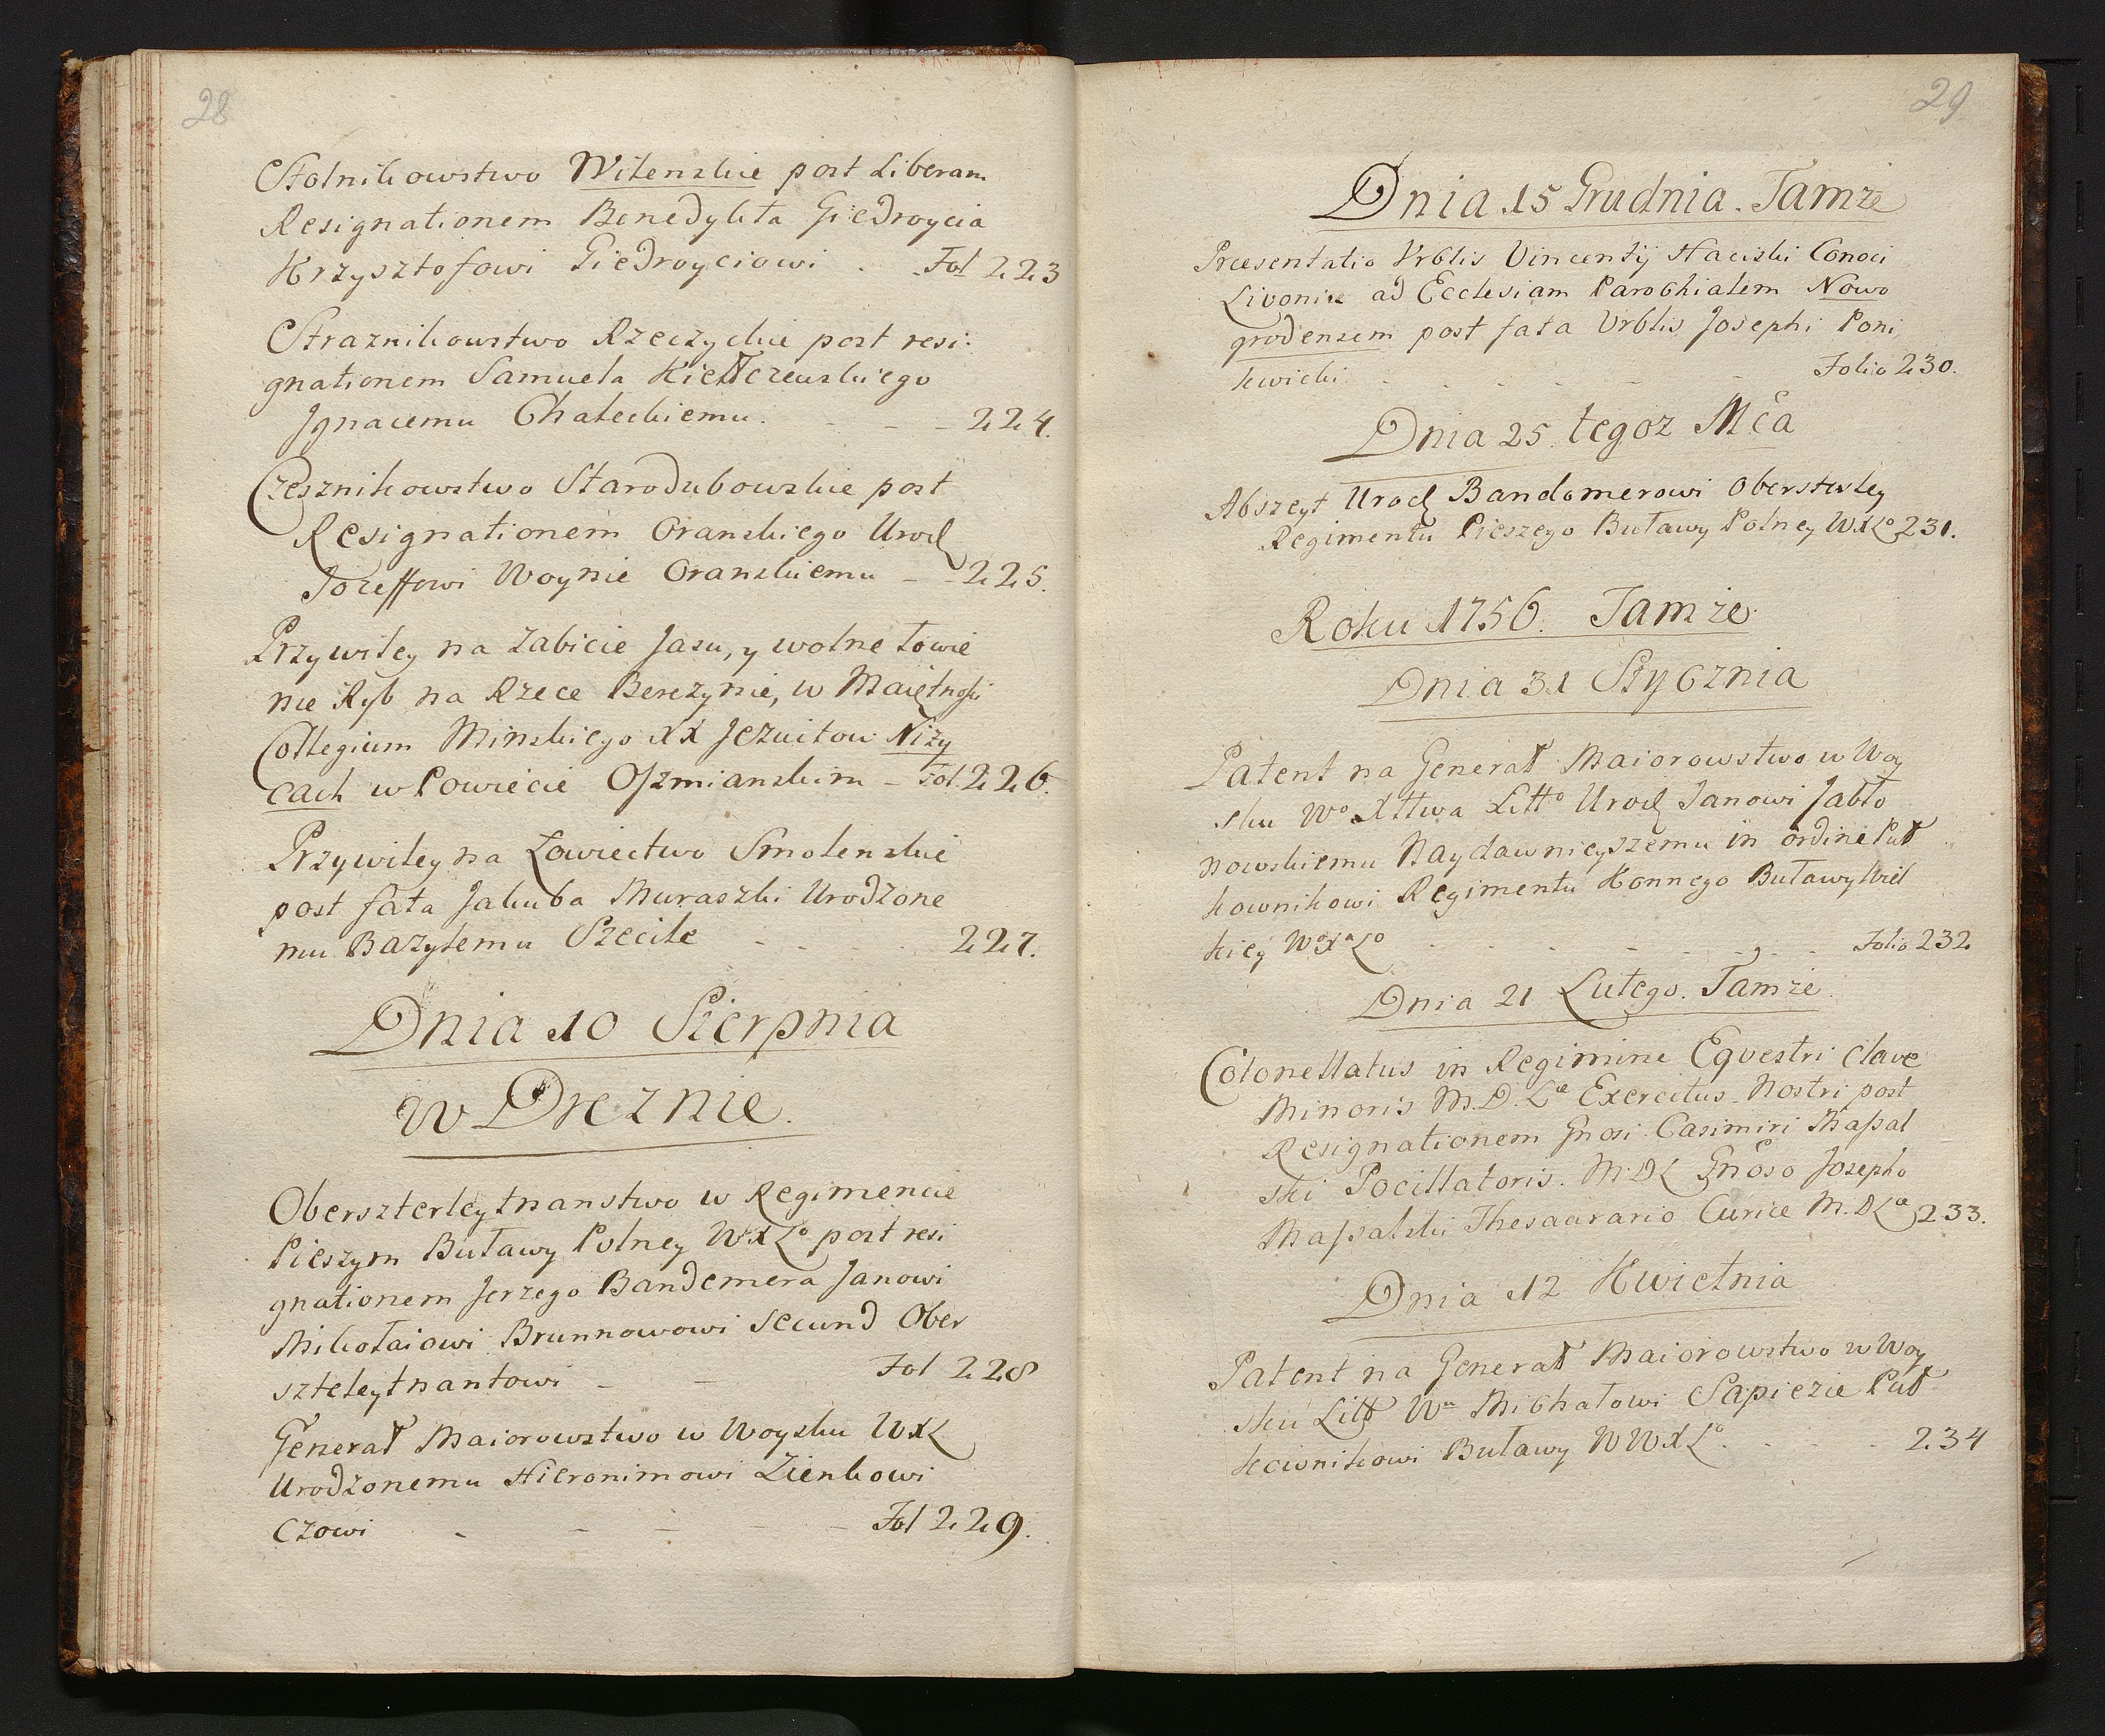 28
Stolnikowstwo Wilenskie post Liberam
Resignationem Benedykta Giedroycia
Krzysztofowi Giedroyciowi . Fol 223
Straznikowstwo Rzeczyckie post resi:
gnationem Samuela Kiełłczewskiego
Jgnacemu Chaleckiemu. - - - 224.
Czesznikowstwo Starodubowskie post
Resignationem Oranskiego Urod
Jozeffowi Woynie Oranskiemu - - 225.
Przywiley na Zabicie Jasu, y wolne Łowie
nie Ryb na Rzece Berezynie, w Maiętnosci
Collegium Minskiego XX Jezuitow Niży
cach w Powiecie Oszmianskim - Fol. 226.
Przywiley na Łowiectwo Smolenskie
post fata Jakuba Muraszki Urodzone
mu Bazylemu Szecile - - - 227.
Dnia 10 Sierpnia
w Dreznie.
Oberszterleytnanstwo w Regimencie
Pieszym Buławy Polney WXLo post resi
gnationem Jerzego Bandemera Janowi
Mikołaiowi Brunnowowi Secund Ober
szteleytnantowi - - Fol 228
Generał Maiorowstwo w Woysku WXL
Urodzonemu Hieronimowi Zienkowi
czowi - - - - Fol 229.
29
Dnia 15 Grudnia. Tamże
Præsentatio Vrblis Vincentij Haciski Conoci
Livoniæ ad Ecclesiam Parochialem Nowo
grodensem post fata Vrblis Josephi Poni,
kwicki . - - - - Folio 230.
Dnia 25. tegoz Mca
Abszeyt Urod Bandomerowi Obersterley
Regimentu Pieszego Buławy Polney WXLo 231.
Roku 1756. Tamże.
Dnia 31 Stycznia
Patent na Generał Maiorowstwo w Woy
sku Wo Xttwa Litto Urod Janowi Jabło
nowskiemu Naydawnieyszemu in ordine Puł
kownikowi Regimentu Konnego Buławy Wiel
kiey WoXaLo - - - - Folio 232
Dnia 21 Lutego. Tamże.
Colonellatus in Regimine Eqvestri Clave
Minoris M.D.Læ Exercitus Nostri post
Resignationem Gnosi Casimiri Massal
ski Pocillatoris. M.DL Gnoso Josepho
Massalski Thesaurario Curiæ M.DLæ 233.
Dnia 12 Kwietnia
Patent na Generał Maiorowstwo w Woy
sku Litt Wu Michałowi Sapiezie Puł
kownikowi Buławy W WXLo. - - - 234